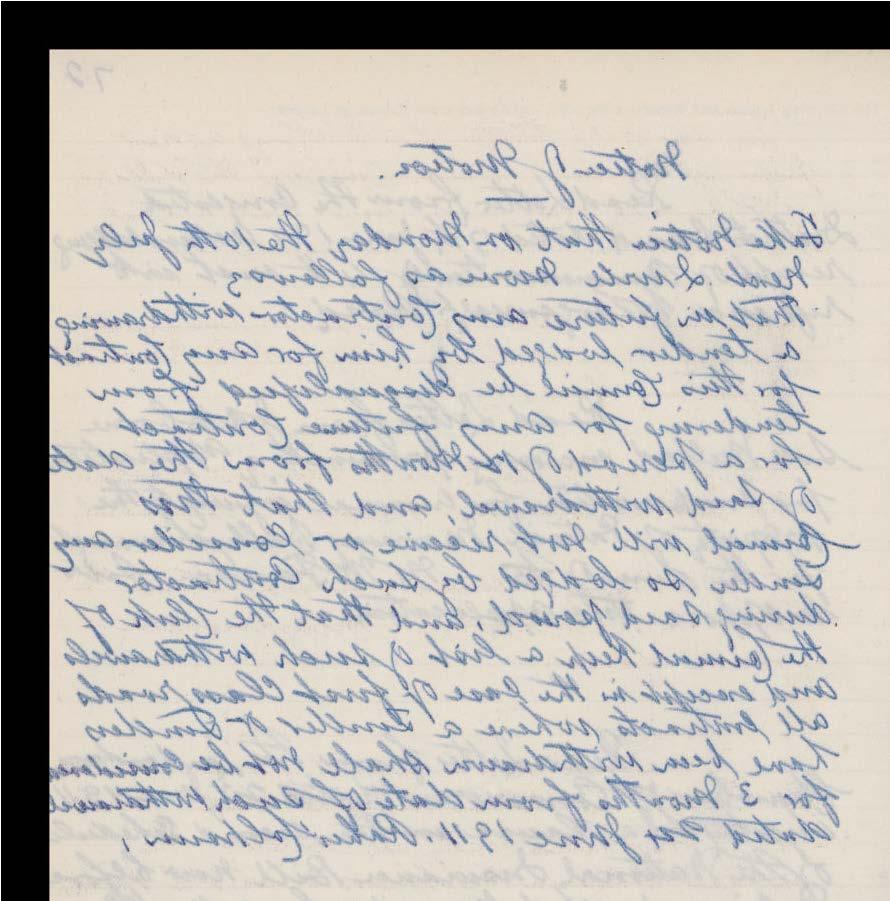 72
Notice of Motion.
Take Notice that on Monday the 10th July
next I will move as follows
that in future any Contractor withdrawing
a tender lodged by him for any Contract
for this Council be disqualified from
tendering for any future Contract
for a period of 12 Months from the date
of said withdrawal, and that this
Council will not receive or Consider any
Tender so lodged by such Contractor
during said period, and that the Clerk of
the Council keep a list of such withdrawals
and except in the Case of first Class roads
all Contracts where a Tender or Tenders
have been withdrawn shall not be Considered
for 3 Months from date of such withdrawal
dated June 1911.